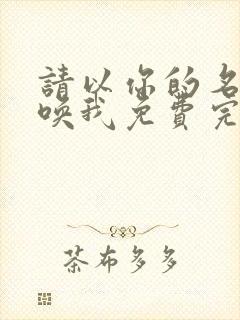 請以你的名
喚我免費完
茶布多多